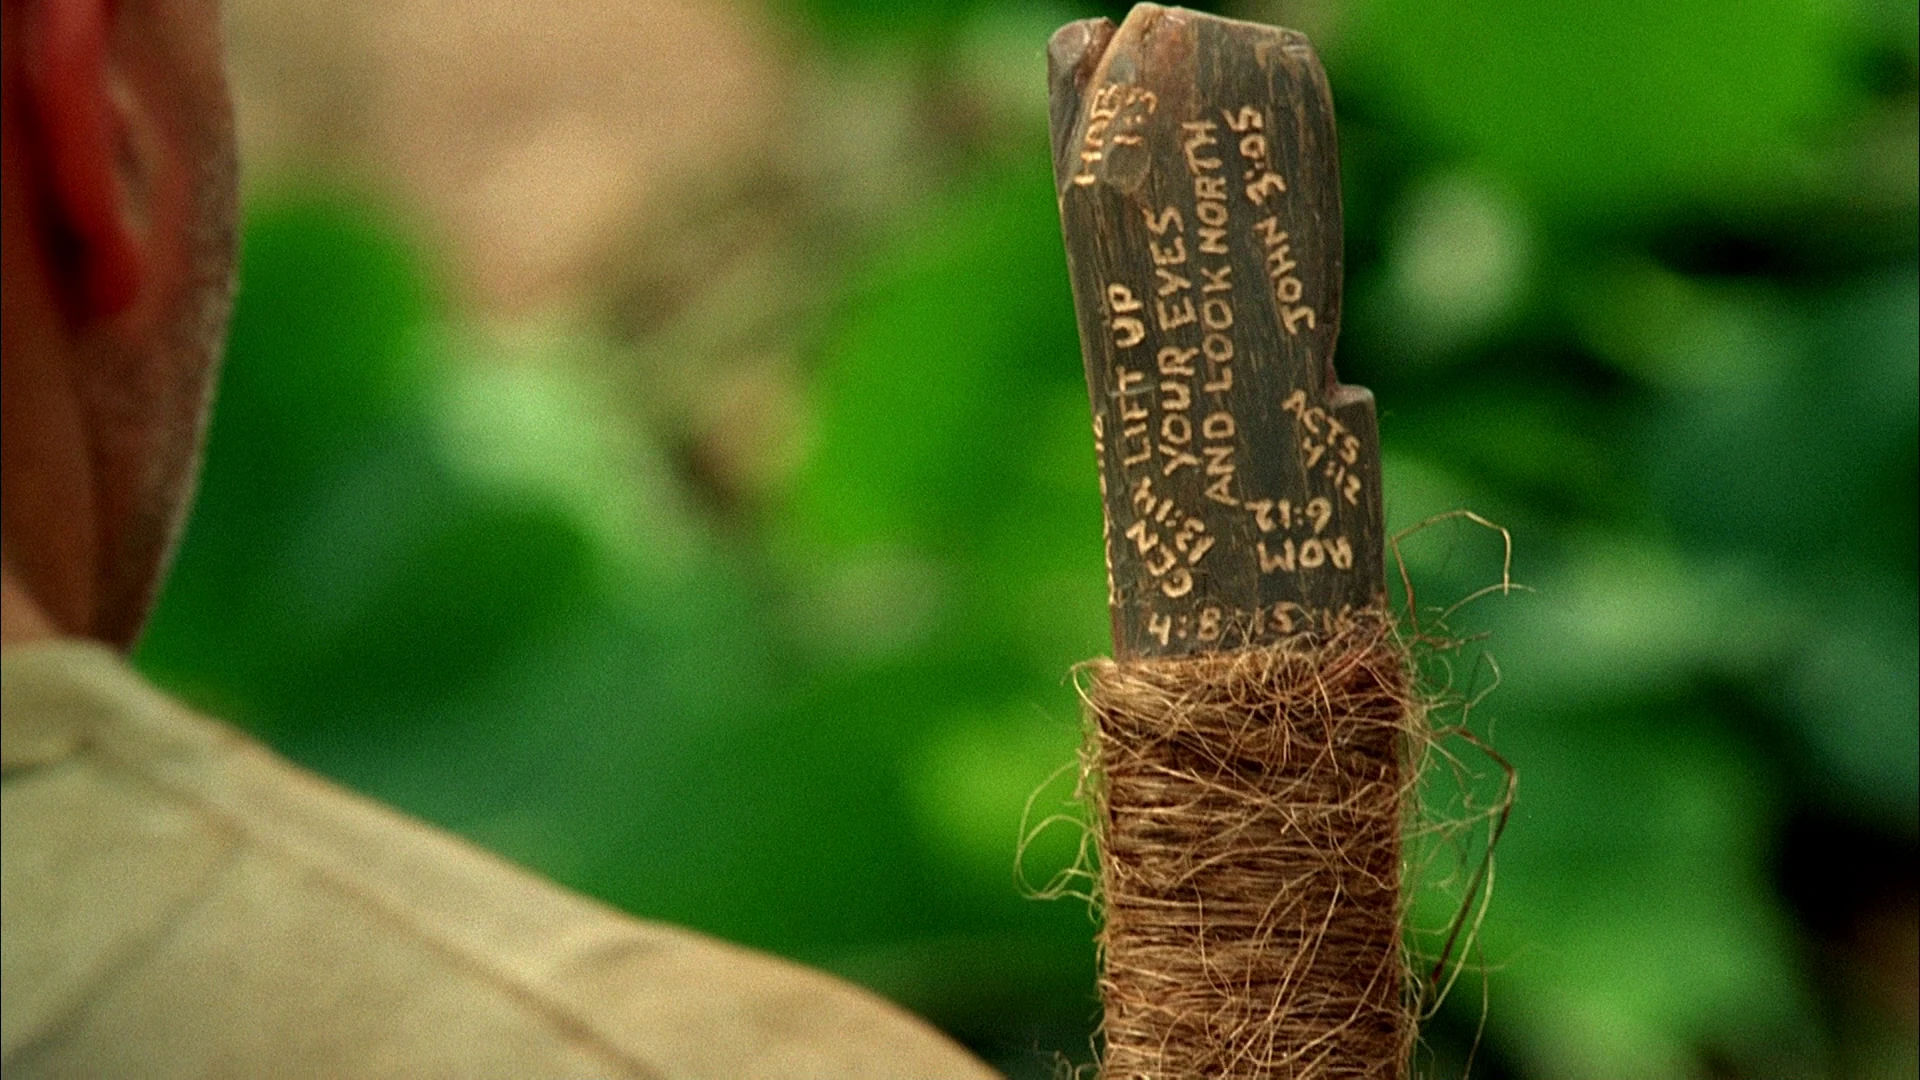 1:5
LIFT UP
YOUR EYES
AND LOOK NORTH
JOHN 3:05
ACTS
4:12
ROM
6:12
GEN
13:14
4:8 15 16